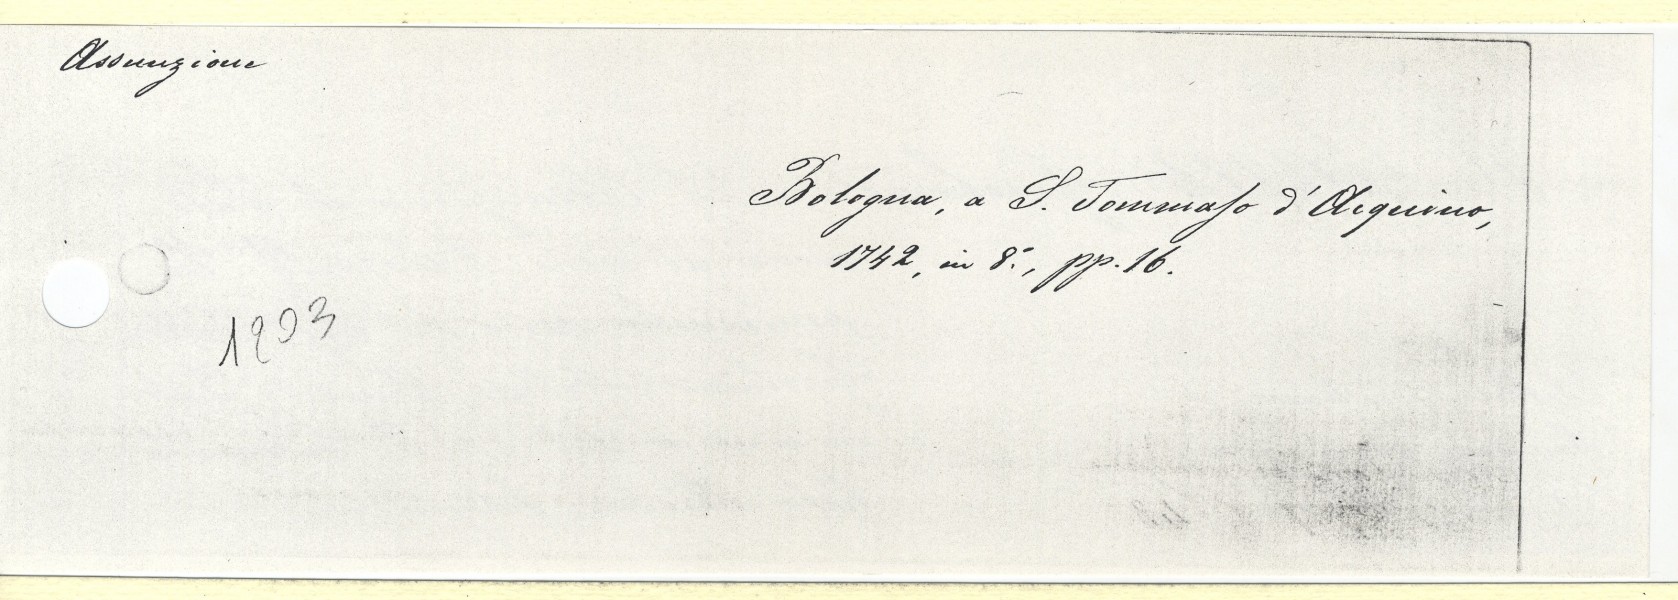 Assunzione
Bologna, a S. Tommaso d'Acquino,
1742, in 8.°, pp. 16.
1203